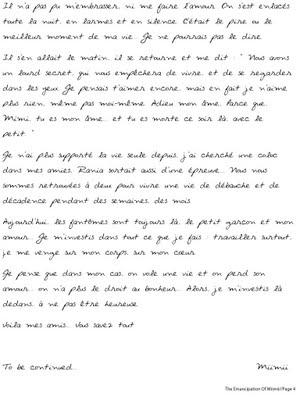 Il n'a pas pu m'embrasser, ni me faire l'amour. On s'est enlacés
toute la nuit, en larmes et en silence. C'était le pire ou le
meilleur moment de ma vie... Je ne pourrais pas le dire.
Il s'en allait le matin, il se retourne et me dit : " Nous avons
un lourd secret, qui nous empêchera de vivre, et de se regarder
dans les yeux. Je pensais t'aimer encore, mais en fait, je n'aime
plus rien, même pas moi-même. Adieu mon âme. Parce que,
Mimii, tu es mon âme... et tu es morte ce soir là, avec le
petit. "
Je n'ai plus supporté la vie seule depuis, j'ai cherché une coloc
dans mes amies. Rania sortait aussi d'une épreuve... Nous nous
sommes retrouvées à deux pour vivre une vie de débauche et de
décadence pendant des semaines, des mois...
Aujourd'hui, les fantômes sont toujours là, le petit garçon et mon
amour. Je m'investis dans tout ce que je fais : travailler surtout,
je me venge sur mon corps, sur mon cœur...
Je pense que dans mon cas, on vole une vie et on perd son
amour... on n'a plus le droit au bonheur. Alors, je m'investis là
dedans, à ne pas être heureuse.
Voilà mes amis... Vous savez tout...
To be continued... Miimii
The Emancipation Of Miimii/Page 4